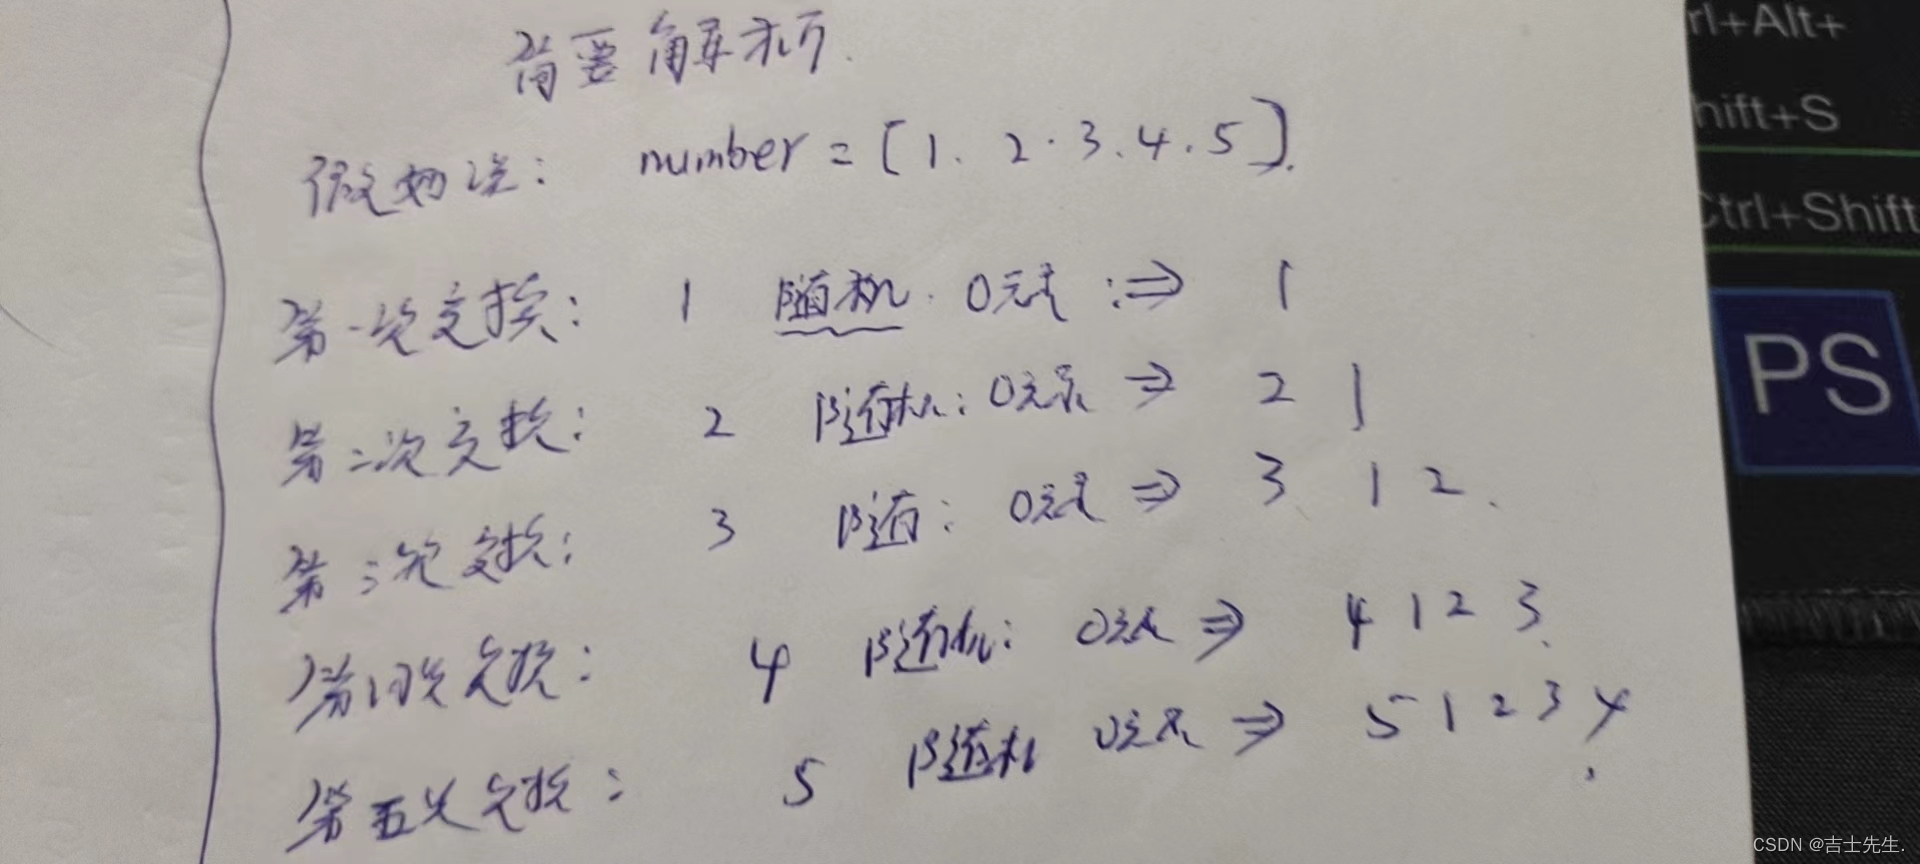 简要解析.
假如说: number = [1. 2. 3. 4. 5].
第一次交换: 1 随机. 0元素 :⇒ 1
第二次交换: 2 随机: 0元素 ⇒ 2 1
第三次交换: 3 随: 0元素 ⇒ 3 1 2.
第四次交换: 4 随机: 0元素 ⇒ 4 1 2 3.
第五次交换: 5 随机 0元素 ⇒ 5 1 2 3 4.
rl+Alt+
hift+S
Ctrl+Shift
PS
CSDN @吉士先生.